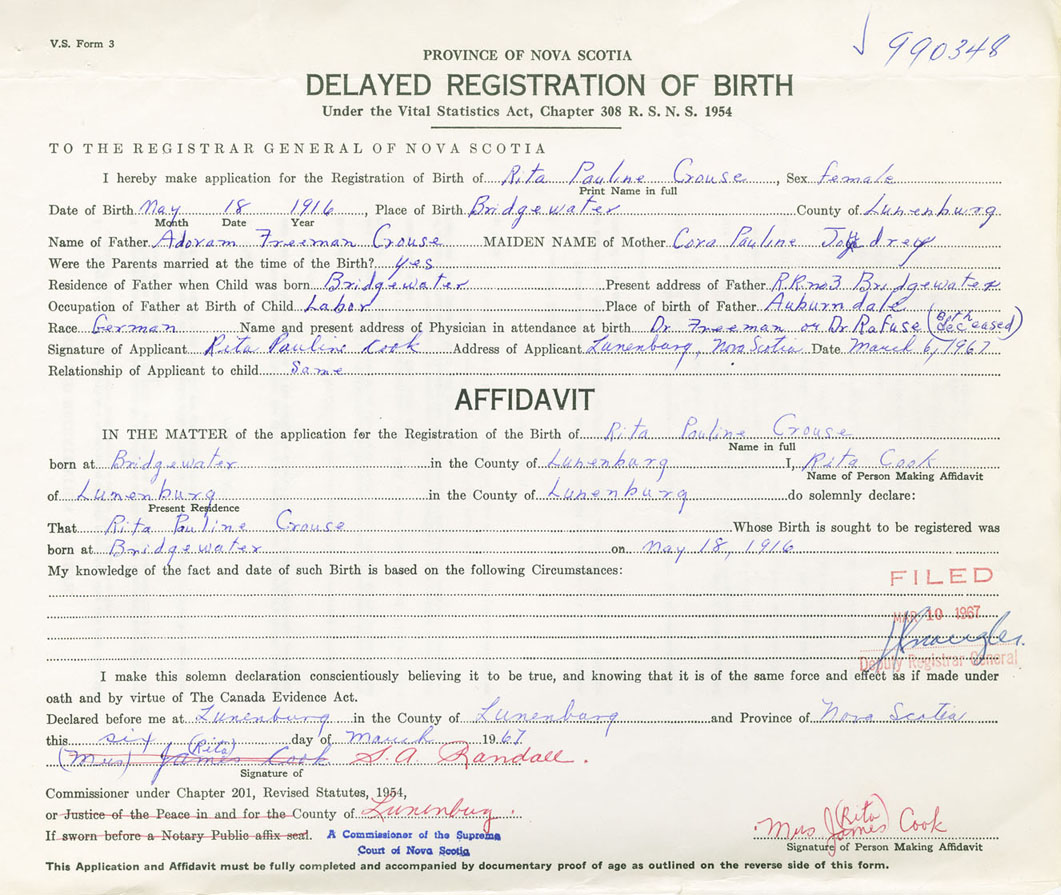 V.S. Form 3
990348
PROVINCE OF NOVA SCOTIA
DELAYED REGISTRATION OF BIRTH
Under the Vital Statistics Act, Chapter 308 R. S. N. S. 1954
TO THE REGISTRAR GENERAL OF NOVA SCOTIA
I hereby make application for the Registration of Birth of Rita Pauline Crouse, Sex female
Print Name in full
Date of Birth May 18 1916, Place of Birth Bridgewater County of Lunenburg
Month Date Year
Name of Father Adoram Freeman Crouse MAIDEN NAME of Mother Cora Pauline
Were the Parents married at the time of the Birth? yes
Residence of Father when Child was born Bridgewater Present address of Father R.R. no 3 Bridgewater
Occupation of Father at Birth of Child Labor Place of birth of Father Auburndale
Race German Name and present address of Physician in attendance at birth Dr. Freeman or Dr Rafuse (Both deceased)
Signature of Applicant Rita Pauline Cook Address of Applicant Lunenburg, Nova Scotia Date March 6, 1967
Relationship of Applicant to child Same
AFFIDAVIT
IN THE MATTER of the application for the Registration of the Birth of Rita Pauline Crouse
Name in full
born at Bridgewater in the County of Lunenburg I, Rita Cook
Name of Person Making Affidavit
of Lunenburg in the County of Lunenburg do solemnly declare:
Present Residence
That Rita Pauline Crouse Whose Birth is sought to be registered was
born at Bridgewater on May 18, 1916
My knowledge of the fact and date of such Birth is based on the following Circumstances:
FILED
MAR 10 1967
Deputy Registrar General
I make this solemn declaration conscientiously believing it to be true, and knowing that it is of the same force and effect as if made under
oath and by virtue of The Canada Evidence Act.
Declared before me at Lunenburg in the County of Lunenburg and Province of Nova Scotia
this six day of March 1967
(Mrs) (Rita) James Cook S. A. Randall.
Signature of
Commissioner under Chapter 201, Revised Statutes, 1954,
or Justice of the Peace in and for the County of Lunenburg.
If sworn before a Notary Public affix seal. A Commissioner of the Supreme
Court of Nova Scotia
Mrs James (Rita) Cook
Signature of Person Making Affidavit
This Application and Affidavit must be fully completed and accompanied by documentary proof of age as outlined on the reverse side of this form.